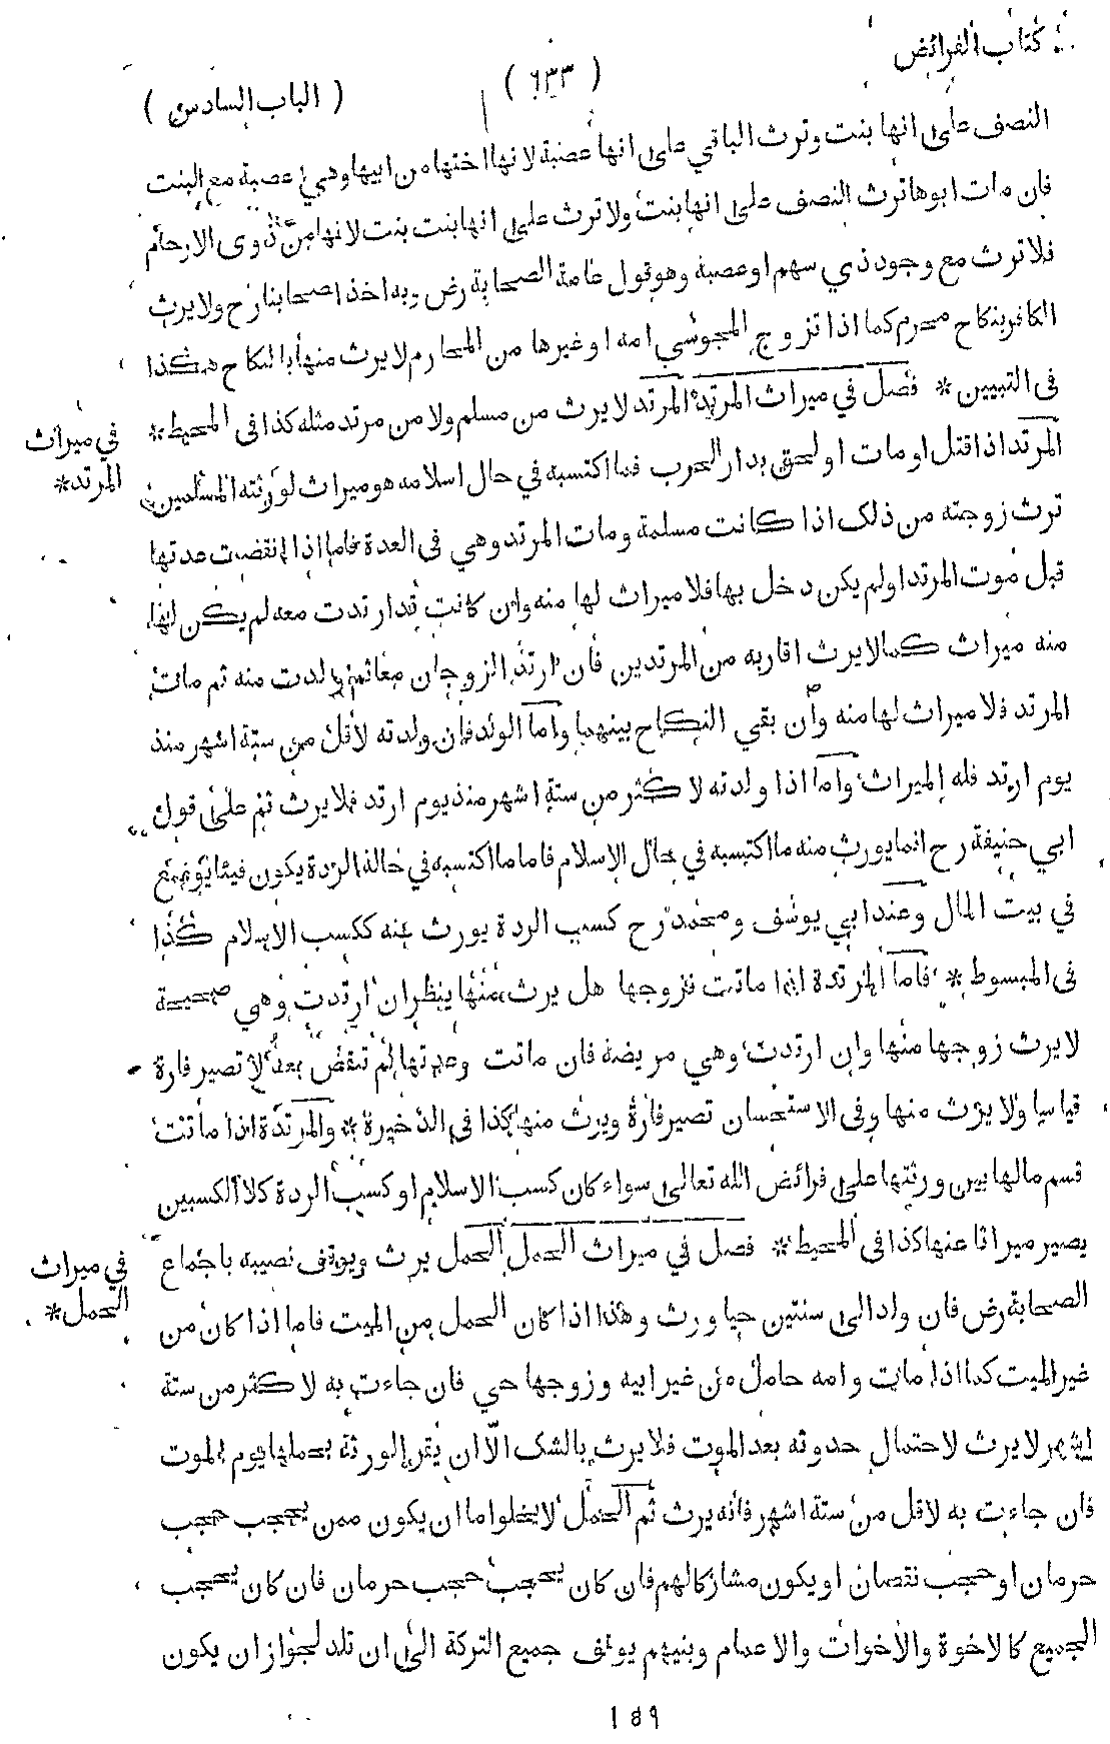 كتاب الفرائض
( ٦٣٣ )
( الباب السادس )
النصف على انها بنت وترث الباقي على انها عصبة لانها اختها من ابيها وهي عصبة مع البنت
فان مات ابوها ترث النصف على انها بنت ولا ترث على انها بنت بنت لانها من ذوى الارحام
فلا ترث مع وجود ذي سهم او عصبة وهو قول عامة الصحابة رض وبه اخذ اصحابنا رح ولا يرث
الكافر بنكاح محرم كما اذا تزوج المجوسي امه او غيرها من المحارم لا يرث منها بالنكاح هكذا
فى التبيين * فصل في ميراث المرتد المرتد لا يرث من مسلم ولا من مرتد مثله كذا فى المحيط *
في ميراث
المرتد *
المرتد اذا قتل او مات او لحق بدار الحرب فما اكتسبه في حال اسلامه هو ميراث لورثته المسلمين
ترث زوجته من ذلك اذا كانت مسلمة ومات المرتد وهي فى العدة فاما اذا انقضت عدتها
قبل موت المرتد او لم يكن دخل بها فلا ميراث لها منه وان كانت قد ارتدت معه لم يكن لها
منه ميراث كما لا يرث اقاربه من المرتدين فان ارتد الزوجان معا ثم ولدت منه ثم مات
المرتد فلا ميراث لها منه وان بقي النكاح بينهما واما الولد فان ولدته لاقل من ستة اشهر منذ
يوم ارتد فله الميراث واما اذا ولدته لا كثر من ستة اشهر منذ يوم ارتد فلا يرث ثم على قول
ابي حنيفة رح انما يورث منه ما اكتسبه في حال الاسلام فاما ما اكتسبه في حالة الردة يكون فيئا يوضع
في بيت المال وعند ابي يوسف ومحمد رح كسب الردة يورث عنه ككسب الاسلام كذا
فى المبسوط * فاما المرتدة اذا ماتت فزوجها هل يرث منها ينظر ان ارتدت وهي صحيحة
لا يرث زوجها منها وان ارتدت وهي مريضة فان ماتت وعدتها لم تنقض بعد لا تصير فارة
قياسا ولا يرث منها وفى الاستحسان تصير فارة ويرث منها كذا فى الذخيرة * والمرتدة اذا ماتت
قسم مالها بين ورثتها على فرائض الله تعالى سواء كان كسب الاسلام او كسب الردة كلا الكسبين
يصير ميراثا عنها كذا فى المحيط * فصل في ميراث الحمل الحمل يرث ويوقف نصيبه باجماع
في ميراث
الحمل *
الصحابة رض فان ولد الى سنتين حيا ورث وهذا اذا كان الحمل من الميت فاما اذا كان من
غير الميت كما اذا مات وامه حامل من غير ابيه وزوجها حي فان جاءت به لا كثر من ستة
اشهر لا يرث لاحتمال حدوثه بعد الموت فلا يرث بالشك الّا ان يقر الورثة بحملها يوم الموت
فان جاءت به لاقل من ستة اشهر فانه يرث ثم الحمل لا يخلوا ما ان يكون ممن يحجب حجب
حرمان او حجب نقصان او يكون مشاركا لهم فان كان يحجب حجب حرمان فان كان يحجب
الجميع كالاخوة والاخوات والاعمام وبنيهم يوقف جميع التركة الى ان تلد لجواز ان يكون
١٥٩